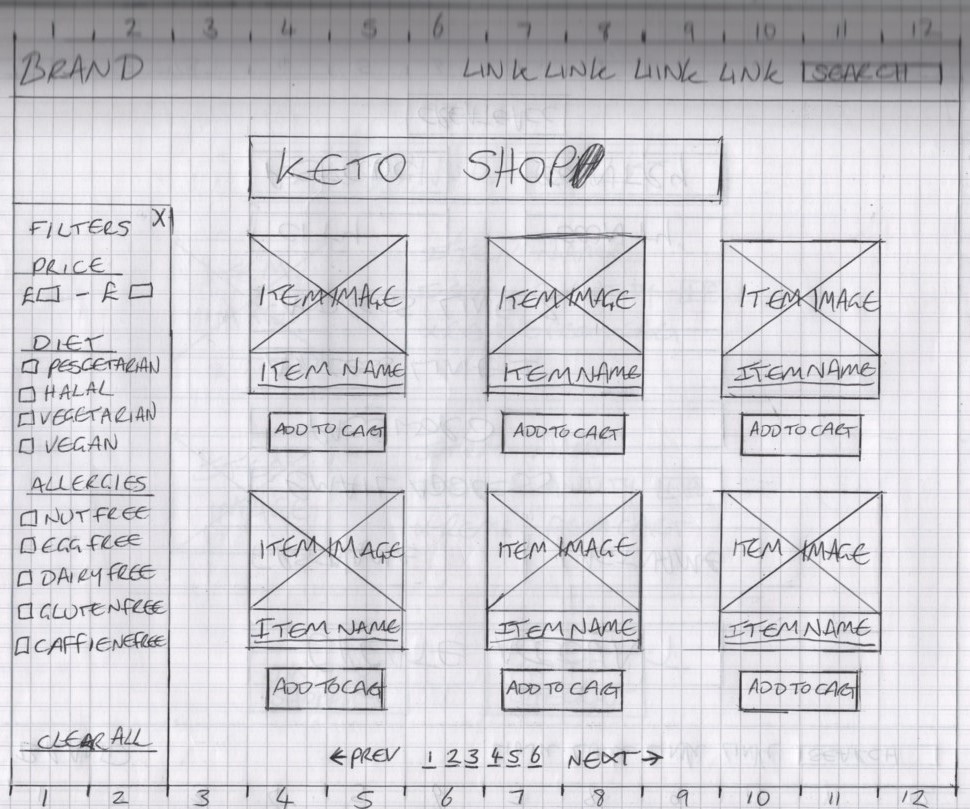 1 2 3 4 5 6 7 8 9 10 11 12
BRAND LINK LINK LINK LINK SEARCH
KETO SHOP
FILTERS X
PRICE
£ - £
DIET
PESCETARIAN
HALAL
VEGETARIAN
VEGAN
ALLERGIES
NUT FREE
EGG FREE
DAIRY FREE
GLUTEN FREE
CAFFIENE FREE
CLEAR ALL
ITEM IMAGE ITEM IMAGE ITEM IMAGE
ITEM NAME ITEM NAME ITEM NAME
ADD TO CART ADD TO CART ADD TO CART
ITEM IMAGE ITEM IMAGE ITEM IMAGE
ITEM NAME ITEM NAME ITEM NAME
ADD TO CART ADD TO CART ADD TO CART
← PREV 1 2 3 4 5 6 NEXT →
1 2 3 4 5 6 7 8 9 10 11 12